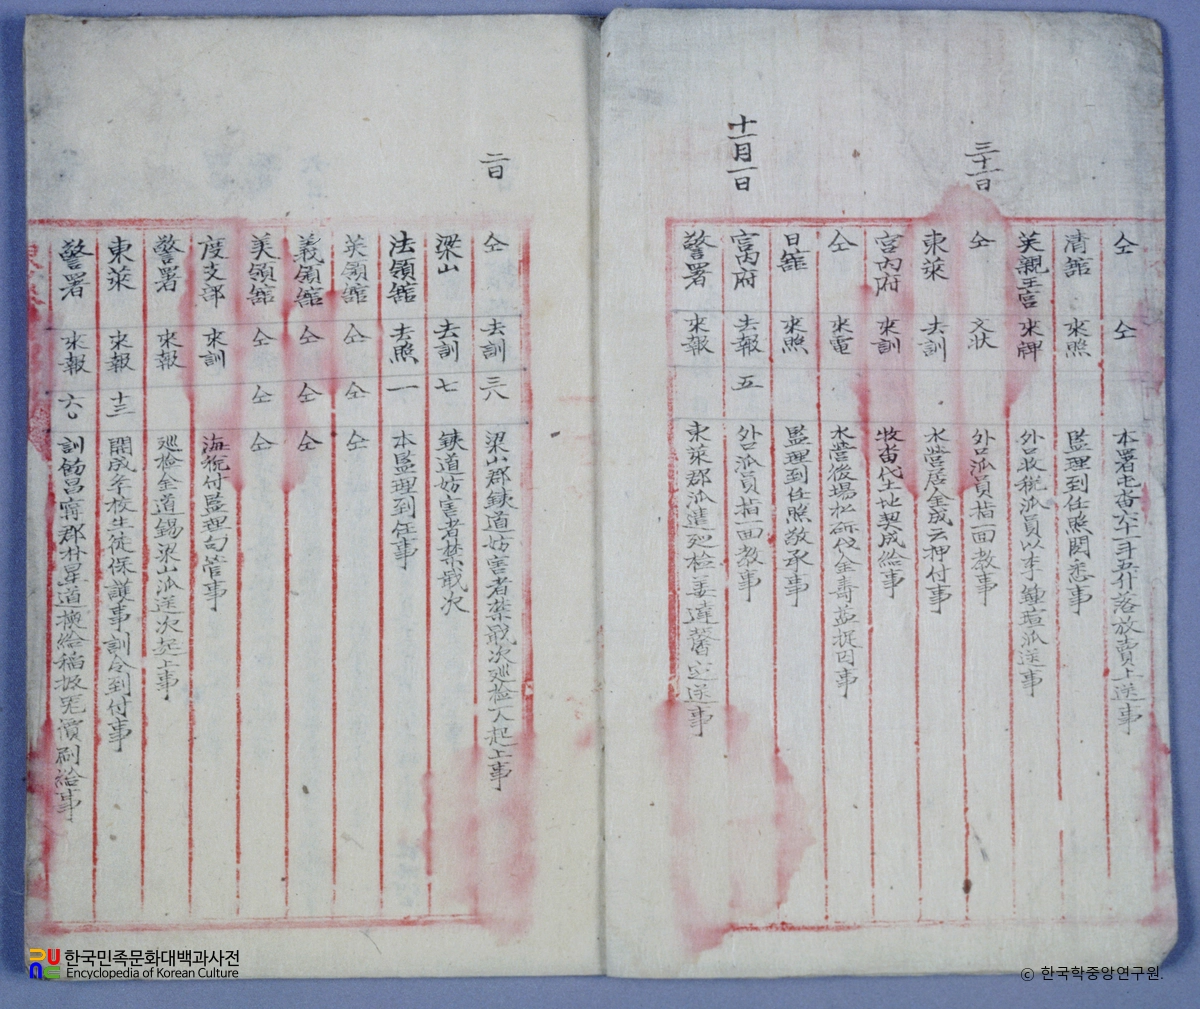 仝 仝 本署屯畓六十一斗五升落放賣上送事
清舘 來照 監理到任照閱悉事
英親王宮 來牌 外口收稅派員以李鍾 派送事
三十一日
仝 文狀 外口派員指一面敎事
東萊 去訓 水營居金成云押付事
宮內府 來訓 牧畓代土地契成給事
仝 來電 水營後場松斫伐金壽 捉囚事
日舘 來照 監理到任照敬承事
十一月一日
宮內府 去報 五 外口派員指一面敎事
警署 來報 東萊郡派遣巡檢姜達馨定送事
仝 去訓 三八 梁山郡鐵道妨害者禁戢次巡檢一人起上事
二日
梁山 去訓 七 鐵道妨害者禁戢次
法領舘 去照 一 本監理到任事
英領舘 仝 仝 仝
義領舘 仝 仝 仝
美領舘 仝 仝 仝
度支部 來訓 海稅付監理句管事
警署 來報 巡檢金道錫梁山派送次起上事
東萊 來報 十三 開成學校生徒保護事訓令到付事
警署 來報 六〇 訓飭昌寧郡朴星道 給稻 價刷給事
한국민족문화대백과사전
Encyclopedia of Korean Culture
© 한국학중앙연구원.